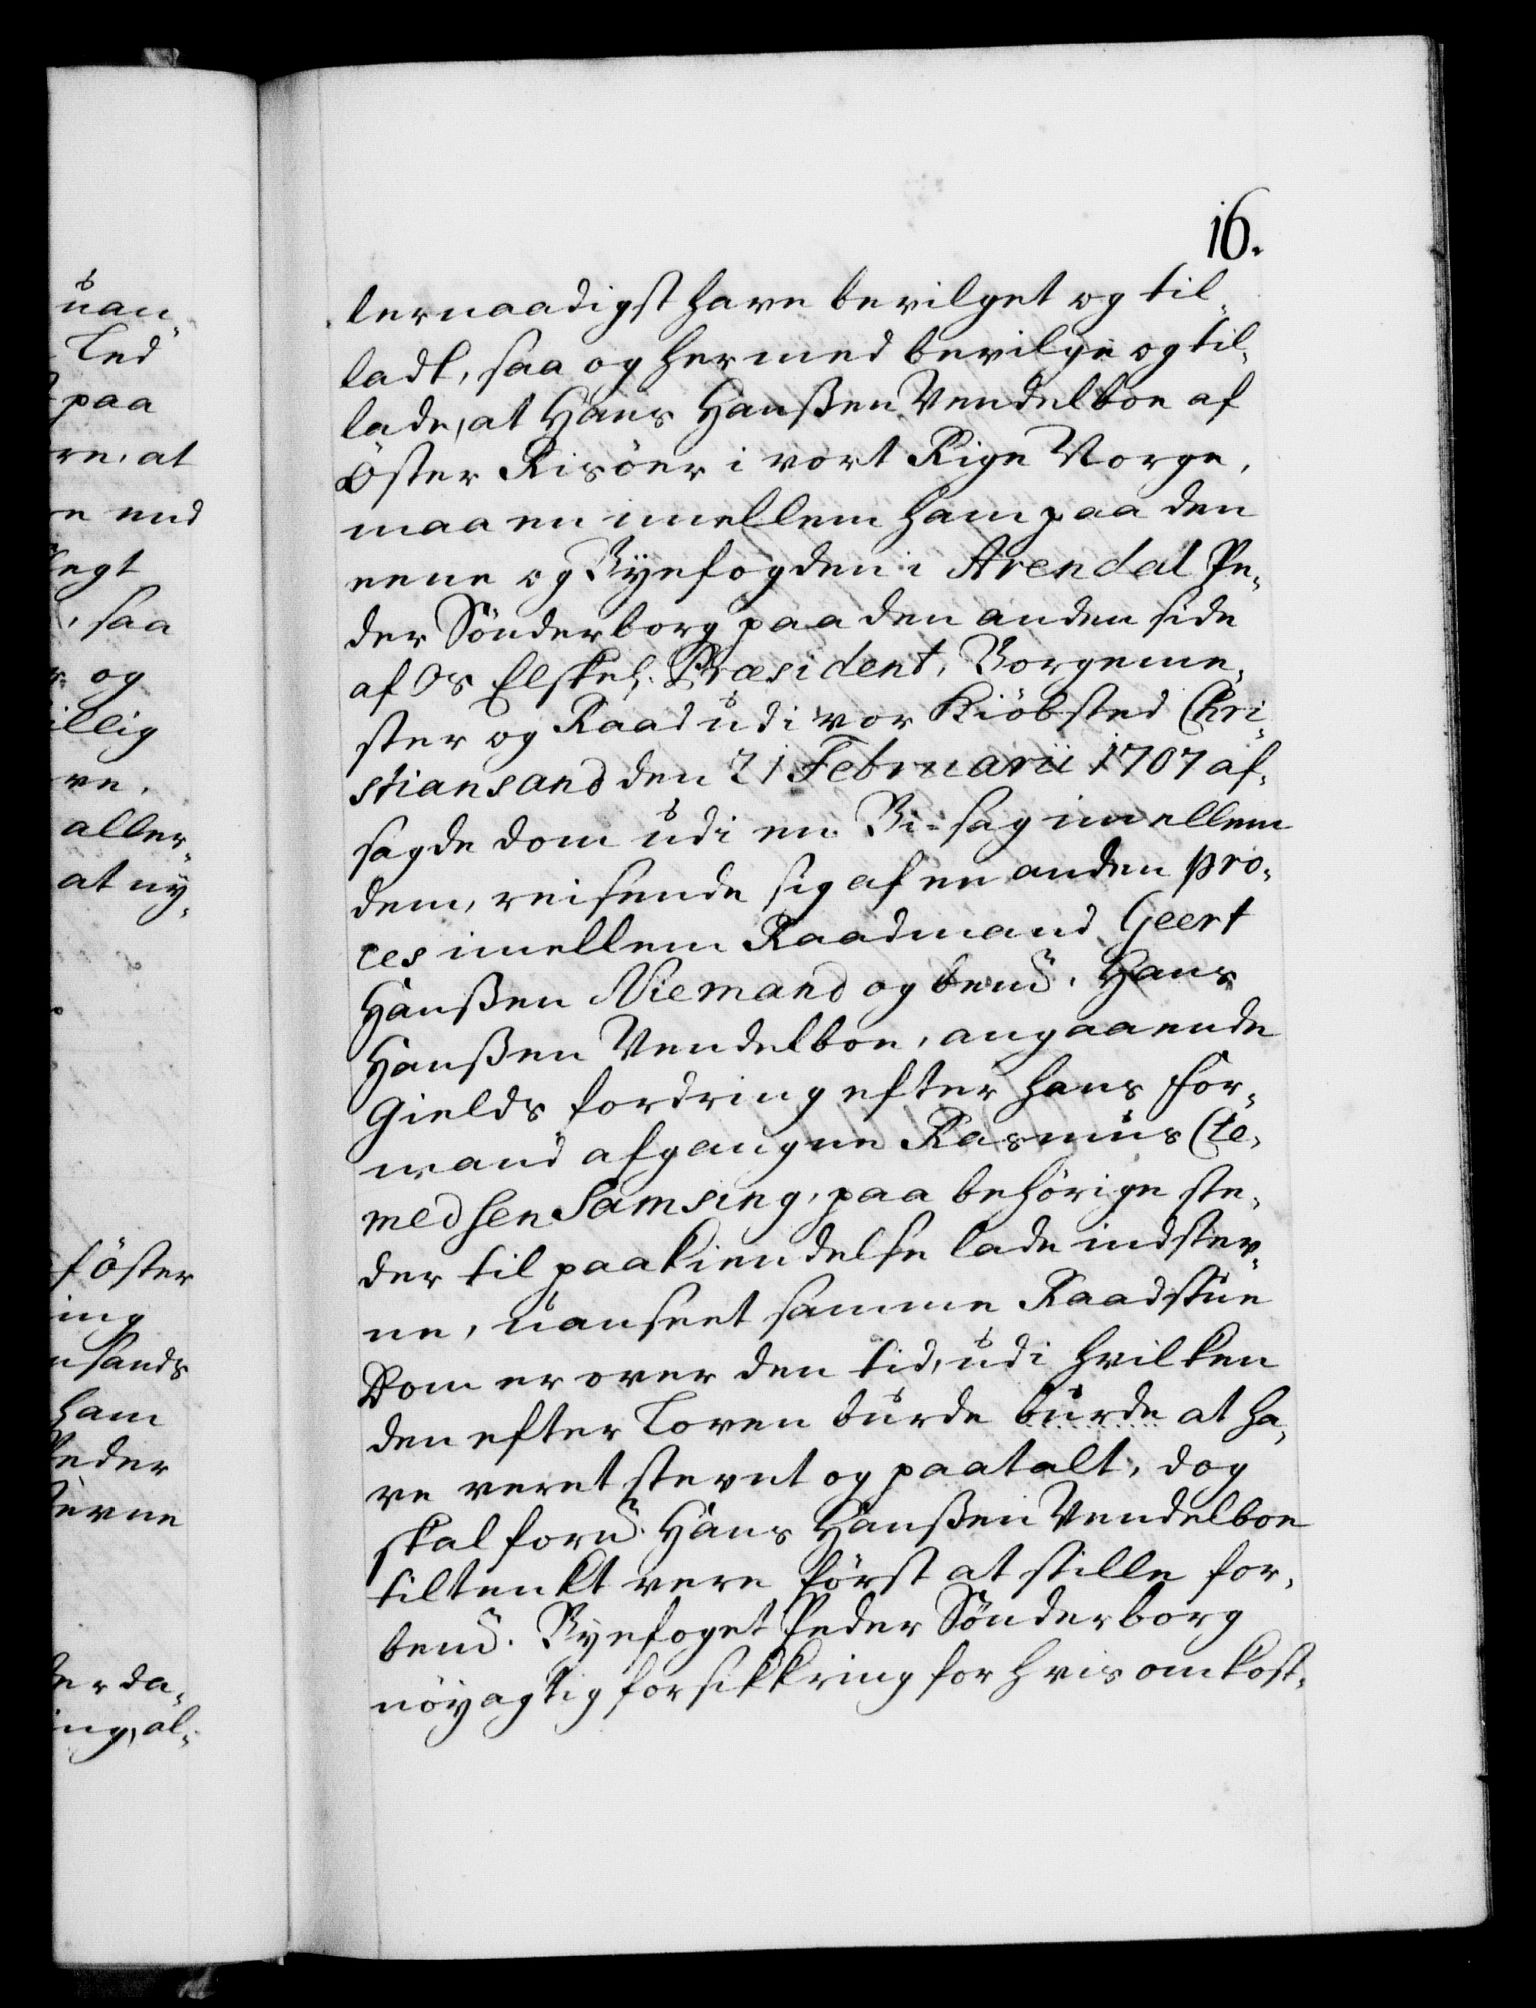 uan-
Led
paa
re, at
re end
legt
, saa
r og
illig
re,
aller-
at ny-
föster
ing
nsands
ham
Peder
terne
der da-
ing, al-
16.
lernaadigst have bevilget og til-
ladt, saa og hermed bevilge og til-
lade, at Hans Hanßen Vendelboe af
Öster Risöer i vort Rige Norge,
maa en imellem ham paa den
eene og Byefogden i Arendal Pe-
der Sönderborg paa den anden side
af Os Elskel: Præsident, Borgeme-
ster og Raad udi vor Kiöbsted Chri-
stiansand den 21 Februarii 1707 af-
sagde dom udi en Bi-sag imellem
dem, reisende sig af en anden pro-
ces imellem Raadmand Geert
Hanßen Niemand og bem.d Hans
Hanßen Vendelboe, angaaende
Gields fordring efter hans for-
mand afgangne Rasmus Cle-
medsen Samsing, paa behörige ste-
der til paakiendelse lade indstev-
ne, uanseet samme Raadstue
Dom er over den tid, udi hvilken
den efter Loven burde burde at ha-
ve veret stevnt og paatalt, dog
skal forn.d Hans Hanßen Vendelboe
tiltenkt vere först at stille for-
bem.d Byefoget Peder Sönderborg
nöyagtig forsikkring for hvis omkost-